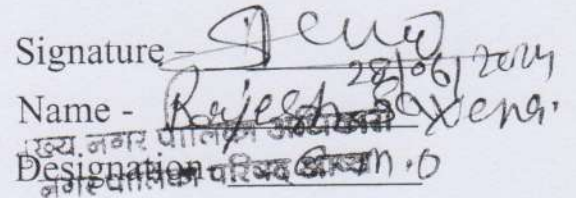 Signature –
28/06/2024
Name - Rajesh Saxena.
मुख्य नगर पालिका अधिकारी
Designation - C.M.O
नगर पालिका परिषद